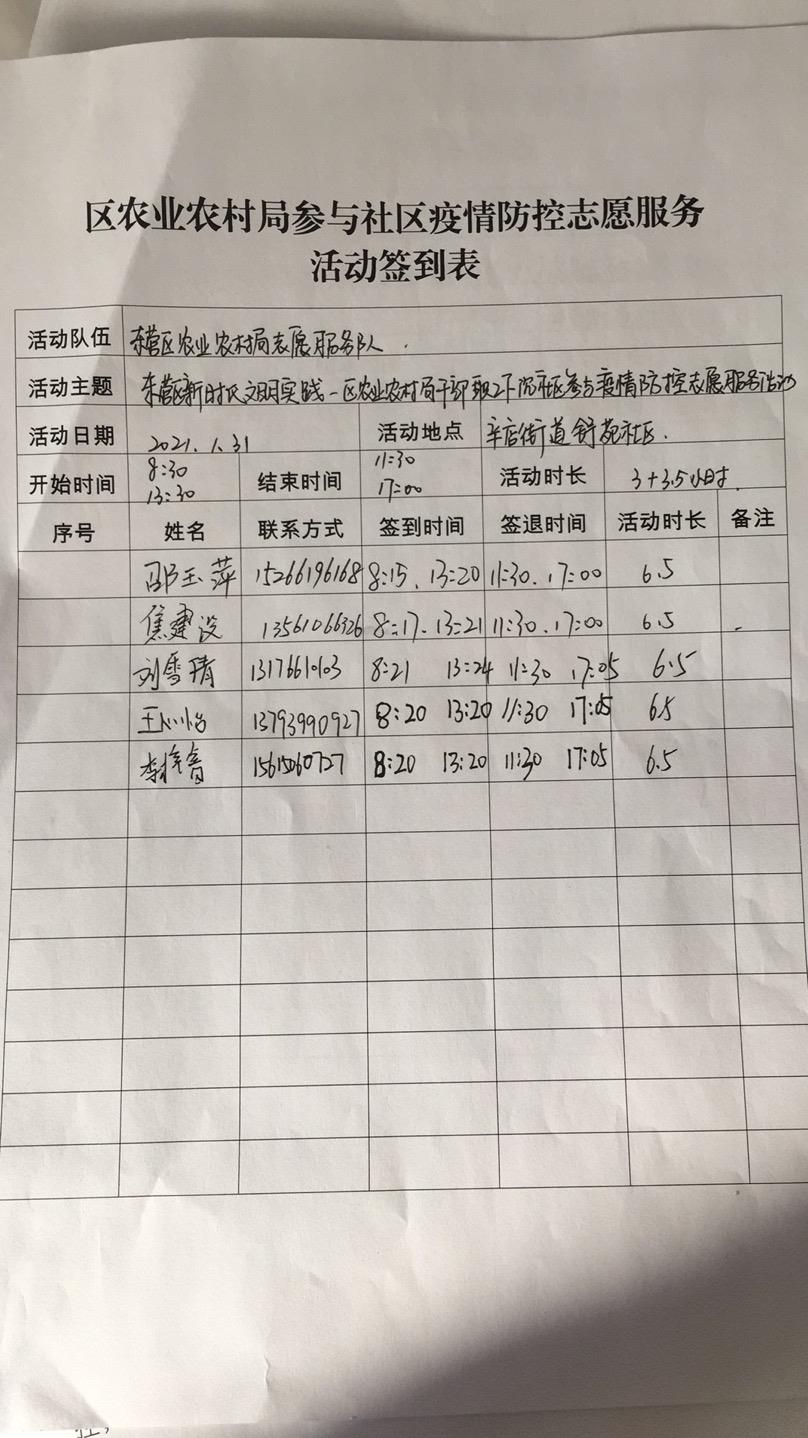 区农业农村局参与社区疫情防控志愿服务
活动签到表
活动队伍 东营区农业农村局志愿服务队
活动主题 东营区新时代文明实践-区农业农村局干部职工下沉社区参与疫情防控志愿服务活动
活动日期 2021.1.31 活动地点 辛店街道舒苑社区.
开始时间 8:30 13:30 结束时间 11:30 17:00 活动时长 3+3.5小时.
序号 姓名 联系方式 签到时间 签退时间 活动时长 备注
邵玉萍 15266196168 8:15. 13:20 11:30. 17:00 6.5
焦建设 13561066326 8:17. 13:21 11:30. 17:00 6.5
刘雪靖 8:21 13:24 11:30 17:05 6.5
王心怡 13793990927 8:20 13:20 11:30 17:05 6.5
15615060727 8:20 13:20 11:30 17:05 6.5